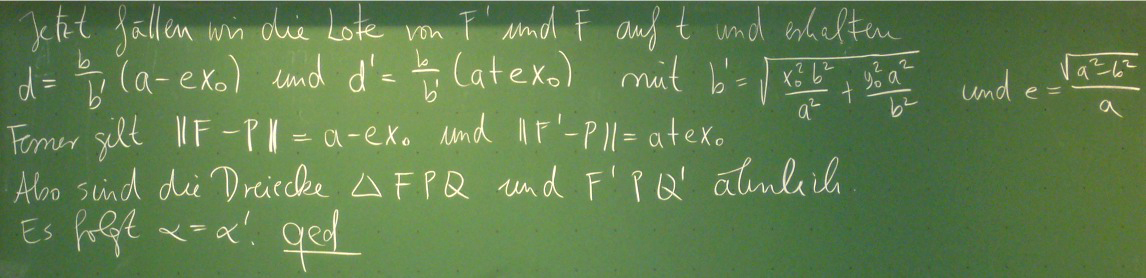 Jetzt fällen wir die Lote von F' und F auf t und erhalten
d = b/b' (a-ex₀) und d' = b/b' (a+ex₀) mit b' = √(x₀²b²/a² + y₀²a²/b²) und e = √(a²-b²)/a
Ferner gilt ‖F-P‖ = a-ex₀ und ‖F'-P‖ = a+ex₀
Also sind die Dreiecke △FPQ und F'PQ' ähnlich.
Es folgt α = α'. qed